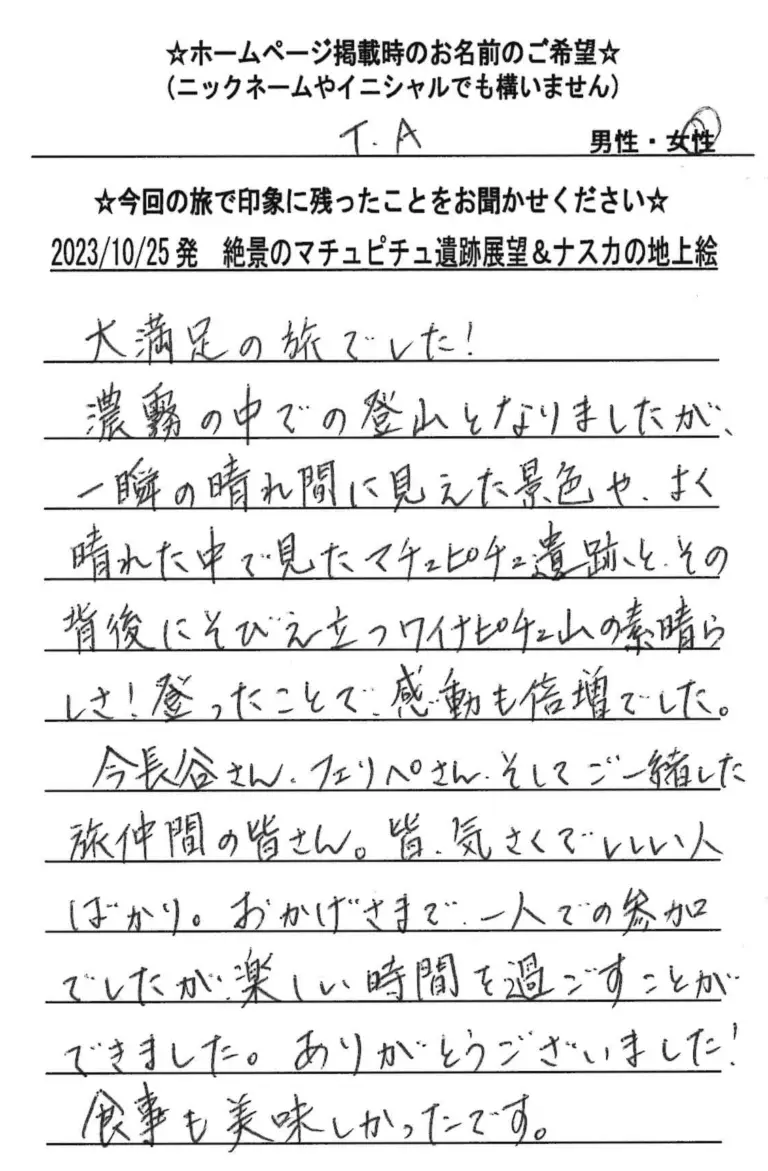 ☆ホームページ掲載時のお名前のご希望☆
(ニックネームやイニシャルでも構いません)
T.A 男性・女性
☆今回の旅で印象に残ったことをお聞かせください☆
2023/10/25発 絶景のマチュピチュ遺跡展望＆ナスカの地上絵
大満足の旅でした!
濃霧の中での登山となりましたが、
一瞬の晴れ間に見えた景色や、よく
晴れた中で見たマチュピチュ遺跡と、その
背後にそびえ立つワイナピチュ山の素晴ら
しさ!登ったことで、感動も倍増でした。
今長谷さん、フェリペさん、そしてご一緒した
旅仲間の皆さん。皆、気さくでいい人
ばかり。おかげさまで、一人での参加
でしたが、楽しい時間を過ごすことが
できました。ありがとうございました!
食事も美味しかったです。